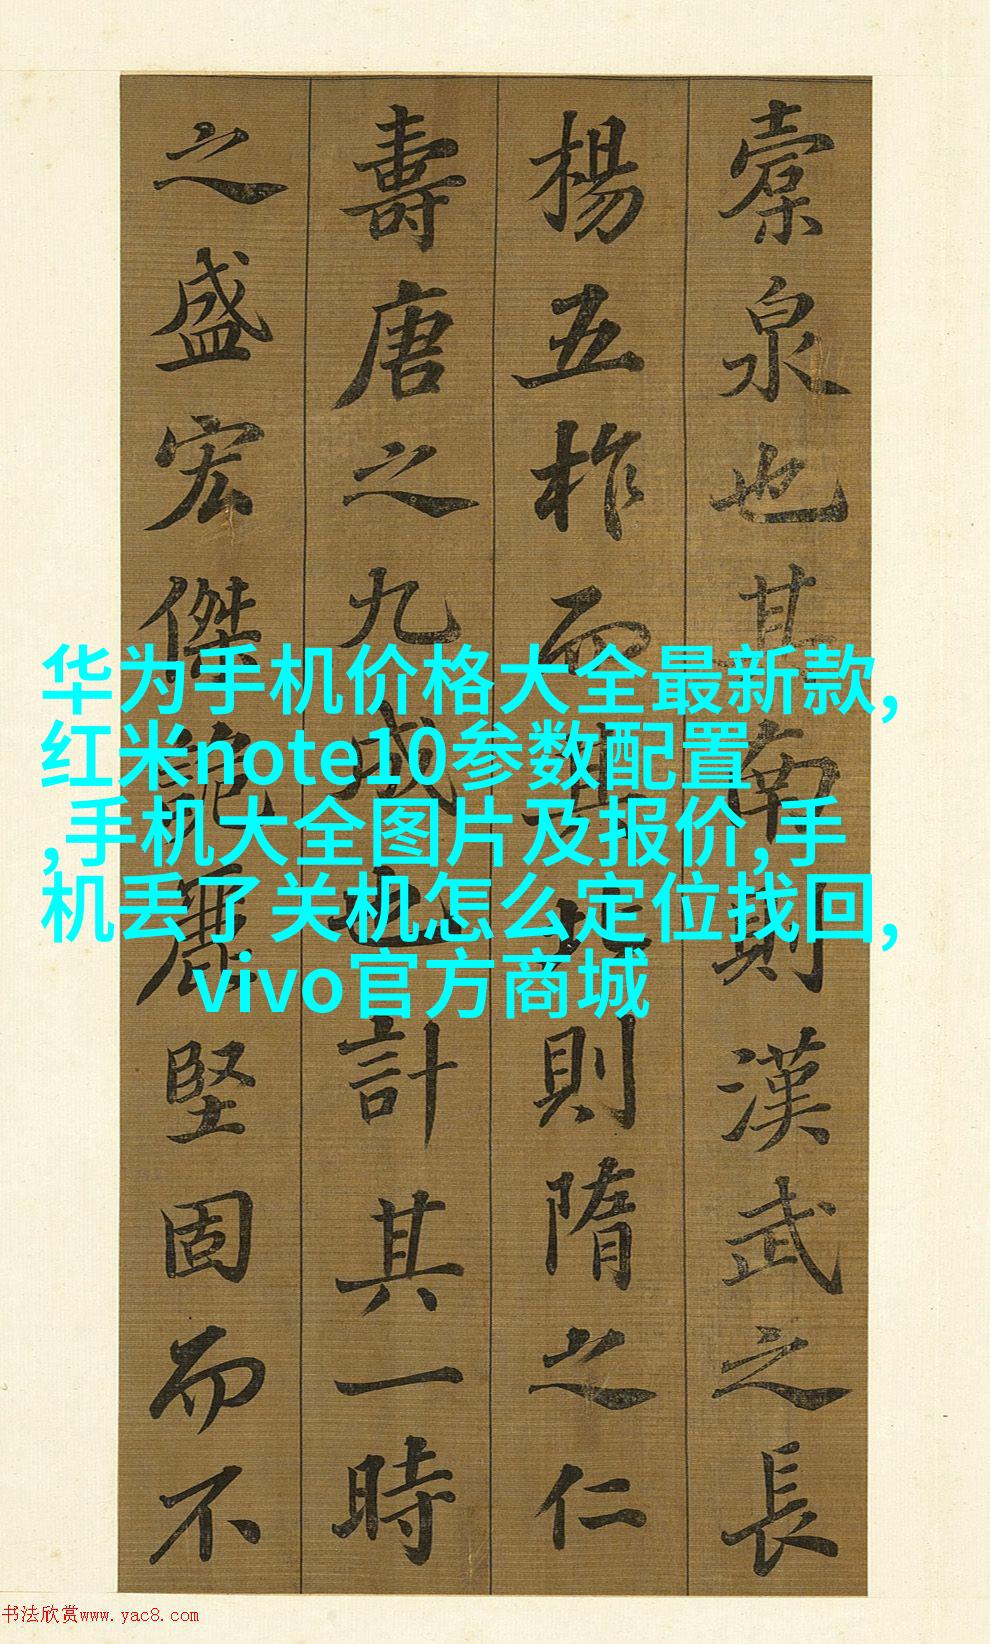 槖泉也其南則漢武之長
楊五柞而其北則隋之仁
壽唐之九成也計其一時
之盛宏傑詭麗堅固而不
华为手机价格大全最新款,
红米note10参数配置
,手机大全图片及报价,手
机丢了关机怎么定位找回,
vivo官方商城
书法欣赏www.yac8.com